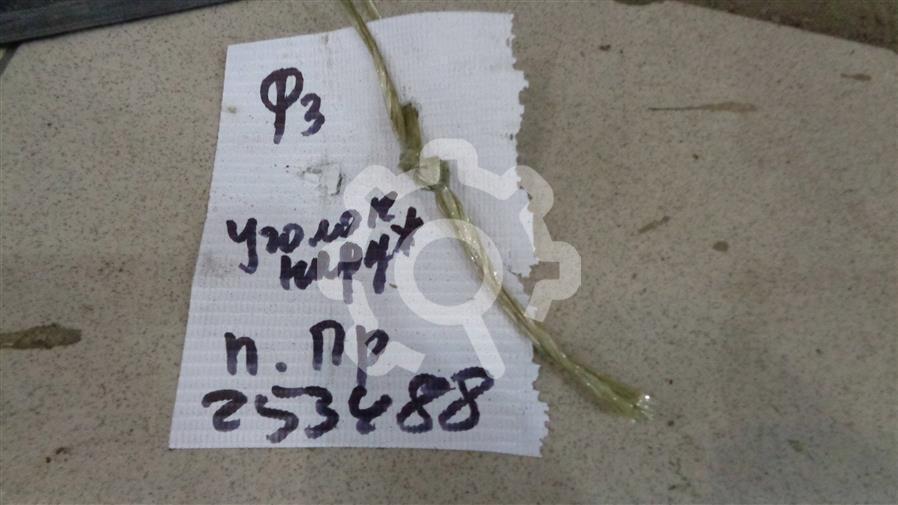 Ф3
Уголок
наруж
п. Пр
253488